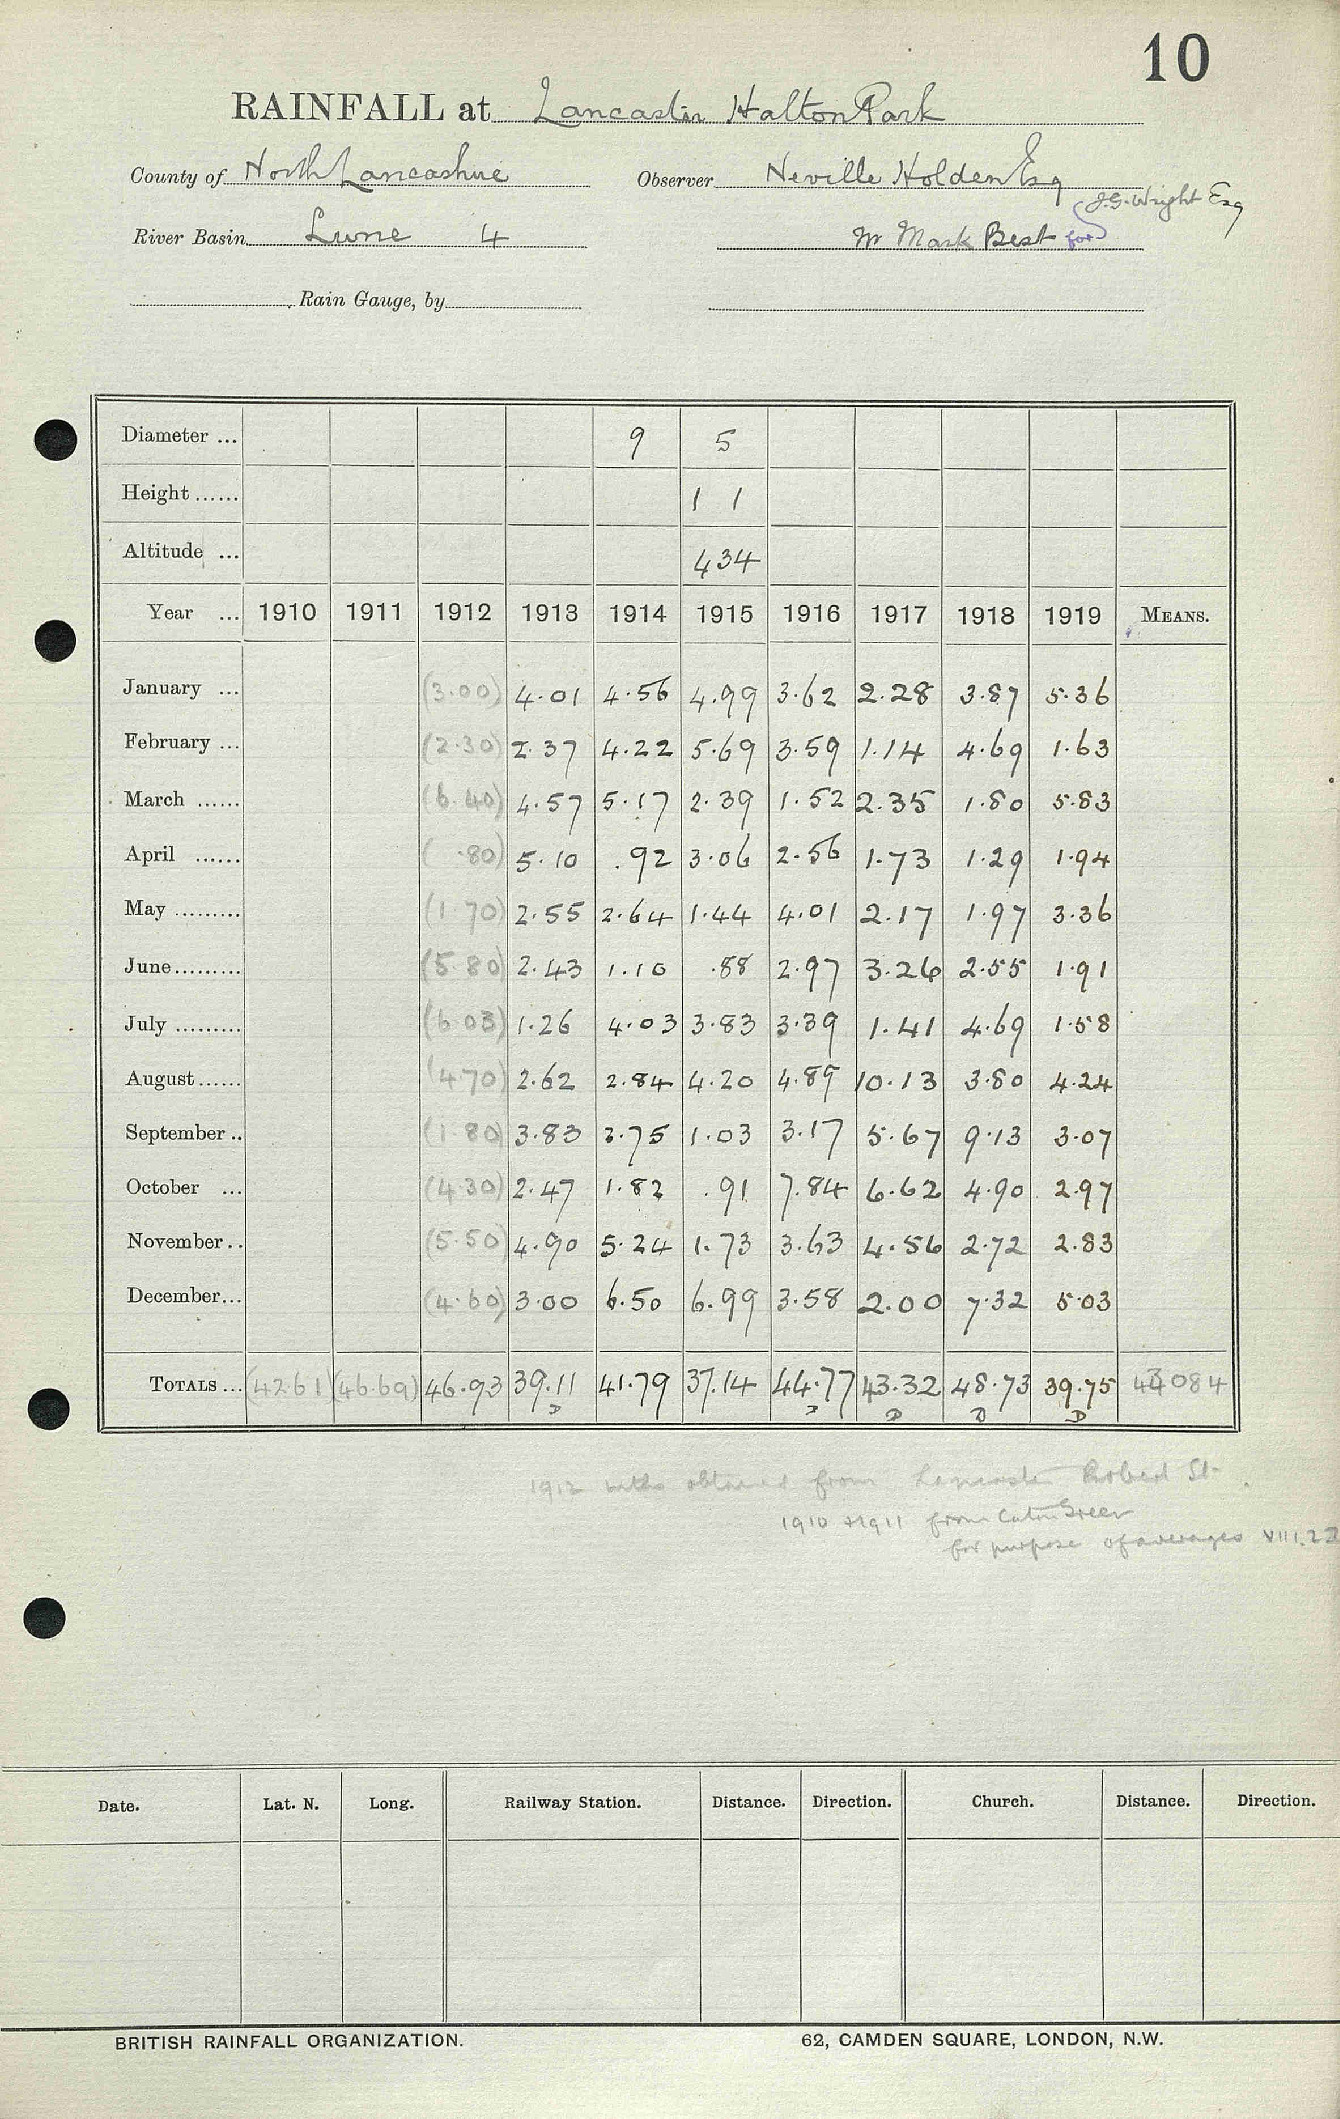 10
RAINFALL at Lancaster Halton Park
County of North Lancashire Observer Neville Holden Esq
J.G. Wright Esq
River Basin Lune 4 Mr Mark Best for
Rain Gauge, by
Diameter ... 9 5
Height ...... 1 1
Altitude ... 434
Year ... 1910 1911 1912 1913 1914 1915 1916 1917 1918 1919 MEANS.
January ... (3.00) 4.01 4.56 4.99 3.62 2.28 3.87 5.36
February ... (2.30) 2.37 4.22 5.69 3.59 1.14 4.69 1.63
March ...... (6.40) 4.57 5.17 2.39 1.52 2.35 1.80 5.83
April ...... ( .80) 5.10 .92 3.06 2.56 1.73 1.29 1.94
May ......... (1.70) 2.55 2.64 1.44 4.01 2.17 1.97 3.36
June......... (5.80) 2.43 1.10 .88 2.97 3.26 2.55 1.91
July ......... (6.03) 1.26 4.03 3.83 3.39 1.41 4.69 1.58
August...... (4.70) 2.62 2.84 4.20 4.89 10.13 3.80 4.24
September .. (1.80) 3.83 2.75 1.03 3.17 5.67 9.13 3.07
October ... (4.30) 2.47 1.82 .91 7.84 6.62 4.90 2.97
November .. (5.50) 4.90 5.24 1.73 3.63 4.56 2.72 2.83
December... (4.60) 3.00 6.50 6.99 3.58 2.00 7.32 5.03
TOTALS ... (42.61) (46.69) 46.93 39.11 41.79 37.14 44.77 43.32 48.73 39.75 43084
D D D D D
1912 mths obtained from Lancaster Robert St.
1910 + 1911 from Caton Green
for purpose of averages VIII.2
Date. Lat. N. Long. Railway Station. Distance. Direction. Church. Distance. Direction.
BRITISH RAINFALL ORGANIZATION. 62, CAMDEN SQUARE, LONDON, N.W.